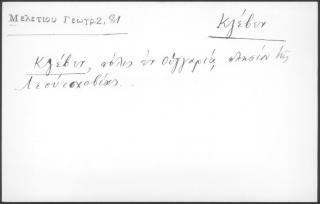 Μελετίου Γεωγρ. 2, 81
Κλέβεν
Κλέβεν, πόλις ἐν Οὑγγαρίᾳ, πλησίον τῆς
Λεούτσχοβίας.